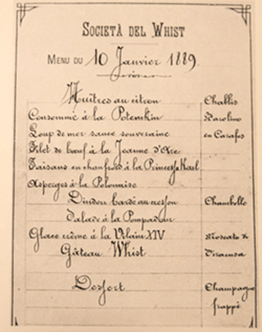 SOCIETÀ DEL WHIST
MENU DU 10 Janvier 1889.
Huîtres au citron Chablis
Consommé à la Potemkin Barolino
Loup de mer sauce souveraine en Carafes
Filet de bœuf à la Jeanne d'Arc
Faisans en chaufroix à la Princesse
Asperges à la Polonaise
Dindon bardé au cresson Chambelle
Salade à la Pompadour
Glace crème à la XIV Moscato di
Gâteau Whist Siracusa
Dessert Champagne
frappé